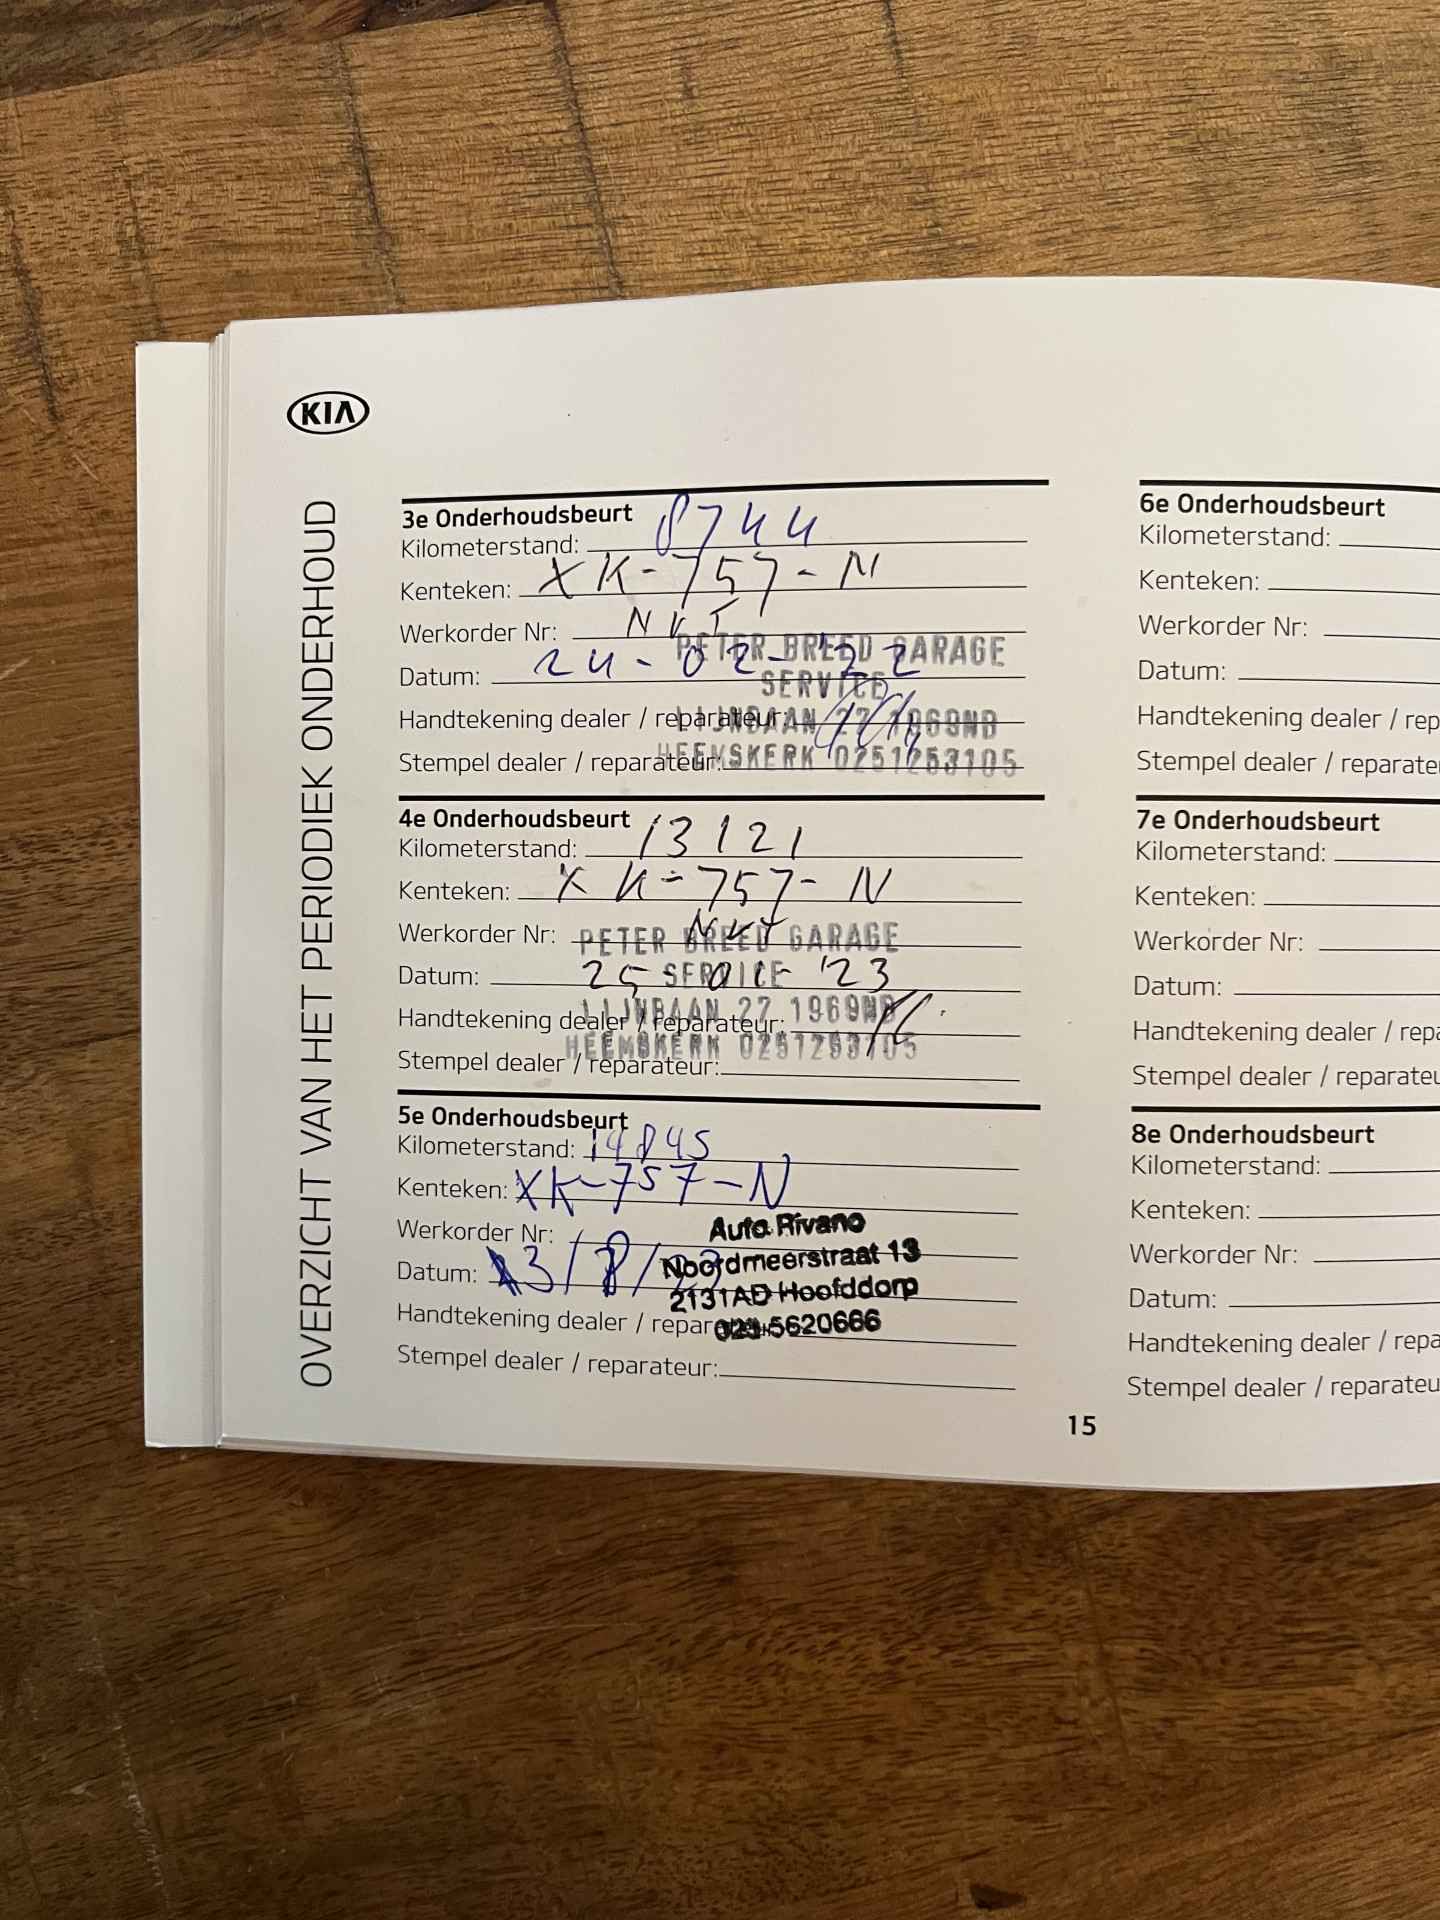 KIA
OVERZICHT VAN HET PERIODIEK ONDERHOUD
3e Onderhoudsbeurt
Kilometerstand: 8744
Kenteken: XK-757-N
Werkorder Nr: NVT
Datum: 24-02-'22
Handtekening dealer / reparateur:
Stempel dealer / reparateur:
PETER BREED GARAGE
SERVICE
LIJNBAAN 27 1969NB
HEEMSKERK 0251253105
4e Onderhoudsbeurt
Kilometerstand: 13121
Kenteken: XK-757-N
Werkorder Nr: NVT
Datum: 25-01-'23
Handtekening dealer / reparateur:
Stempel dealer / reparateur:
PETER BREED GARAGE
SERVICE
LIJNBAAN 27 1969NB
HEEMSKERK 0251253105
5e Onderhoudsbeurt
Kilometerstand: 14845
Kenteken: XK-757-N
Werkorder Nr:
Datum:
Handtekening dealer / reparateur:
Stempel dealer / reparateur:
Auto Rivano
Noordmeerstraat 13
2131AD Hoofddorp
023-5620666
15
6e Onderhoudsbeurt
Kilometerstand:
Kenteken:
Werkorder Nr:
Datum:
Handtekening dealer / rep
Stempel dealer / reparate
7e Onderhoudsbeurt
Kilometerstand:
Kenteken:
Werkorder Nr:
Datum:
Handtekening dealer / repa
Stempel dealer / reparateu
8e Onderhoudsbeurt
Kilometerstand:
Kenteken:
Werkorder Nr:
Datum:
Handtekening dealer / repa
Stempel dealer / reparateu